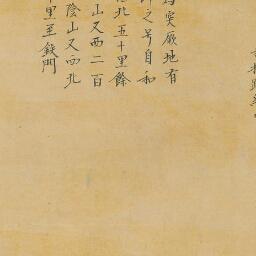 爲突厥地有
之号自和
北五十里餘
山又西二百
陰山又西北
里至鐵門